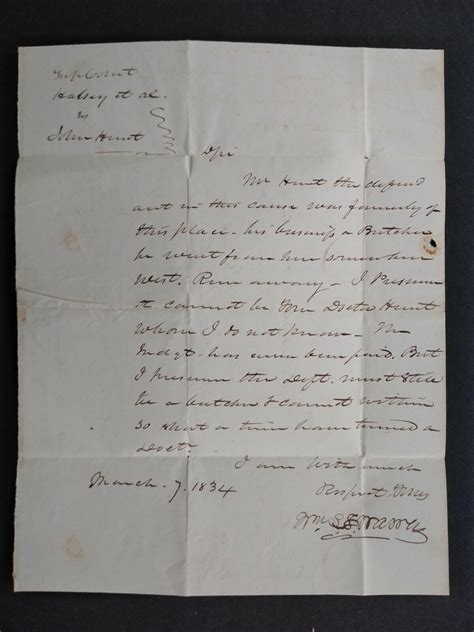 Halsey et al.
vs
John Hunt
Mr Hunt the defend
ant in this cause was formerly of
this place - his business a Butcher
he went from here somewhere
west. Run away - I Presume
it cannot be your Doctor Hunt
whom I do not know - The
Judgt. has never been paid. But
I presume the Deft. must still
be a butcher & cannot within
so short a time have turned a
Doctr
I am with much
Respect Yours
March. 7. 1834
Wm